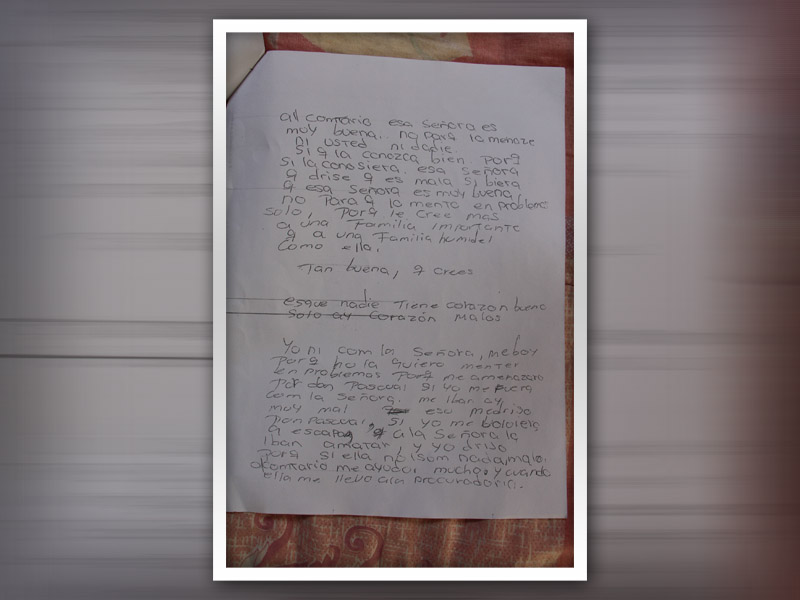 all contrario esa señora es
muy buena. no para la menaze
ni usted ni dadie.
si q la conozca bien. porq
si la conosiera. esa señora
q drise q es mala si biera
q esa señora es muy buena,
no para q la menta en problems
solo, porq le cree mas
a una Familia importante
q a una Familia humidel
como ella.
Tan buena, q crees
esque nadie tiene corazon bueno
solo ay corazón malos
Yo ni com la señora, me boy
porq no la quiero menter
en problemas porq me amenazaro
por don Pascual si yo me fuera
com la señora. me iban ay
muy mal eso medriso
Don Pascual, si yo me bolviera
a escapar, a la señora la
iban amatar, y yo driso
porq si ella no som nada malo.
contrario me ayudo. mucho. y cuando
ella me llevo ala procuradoriri.